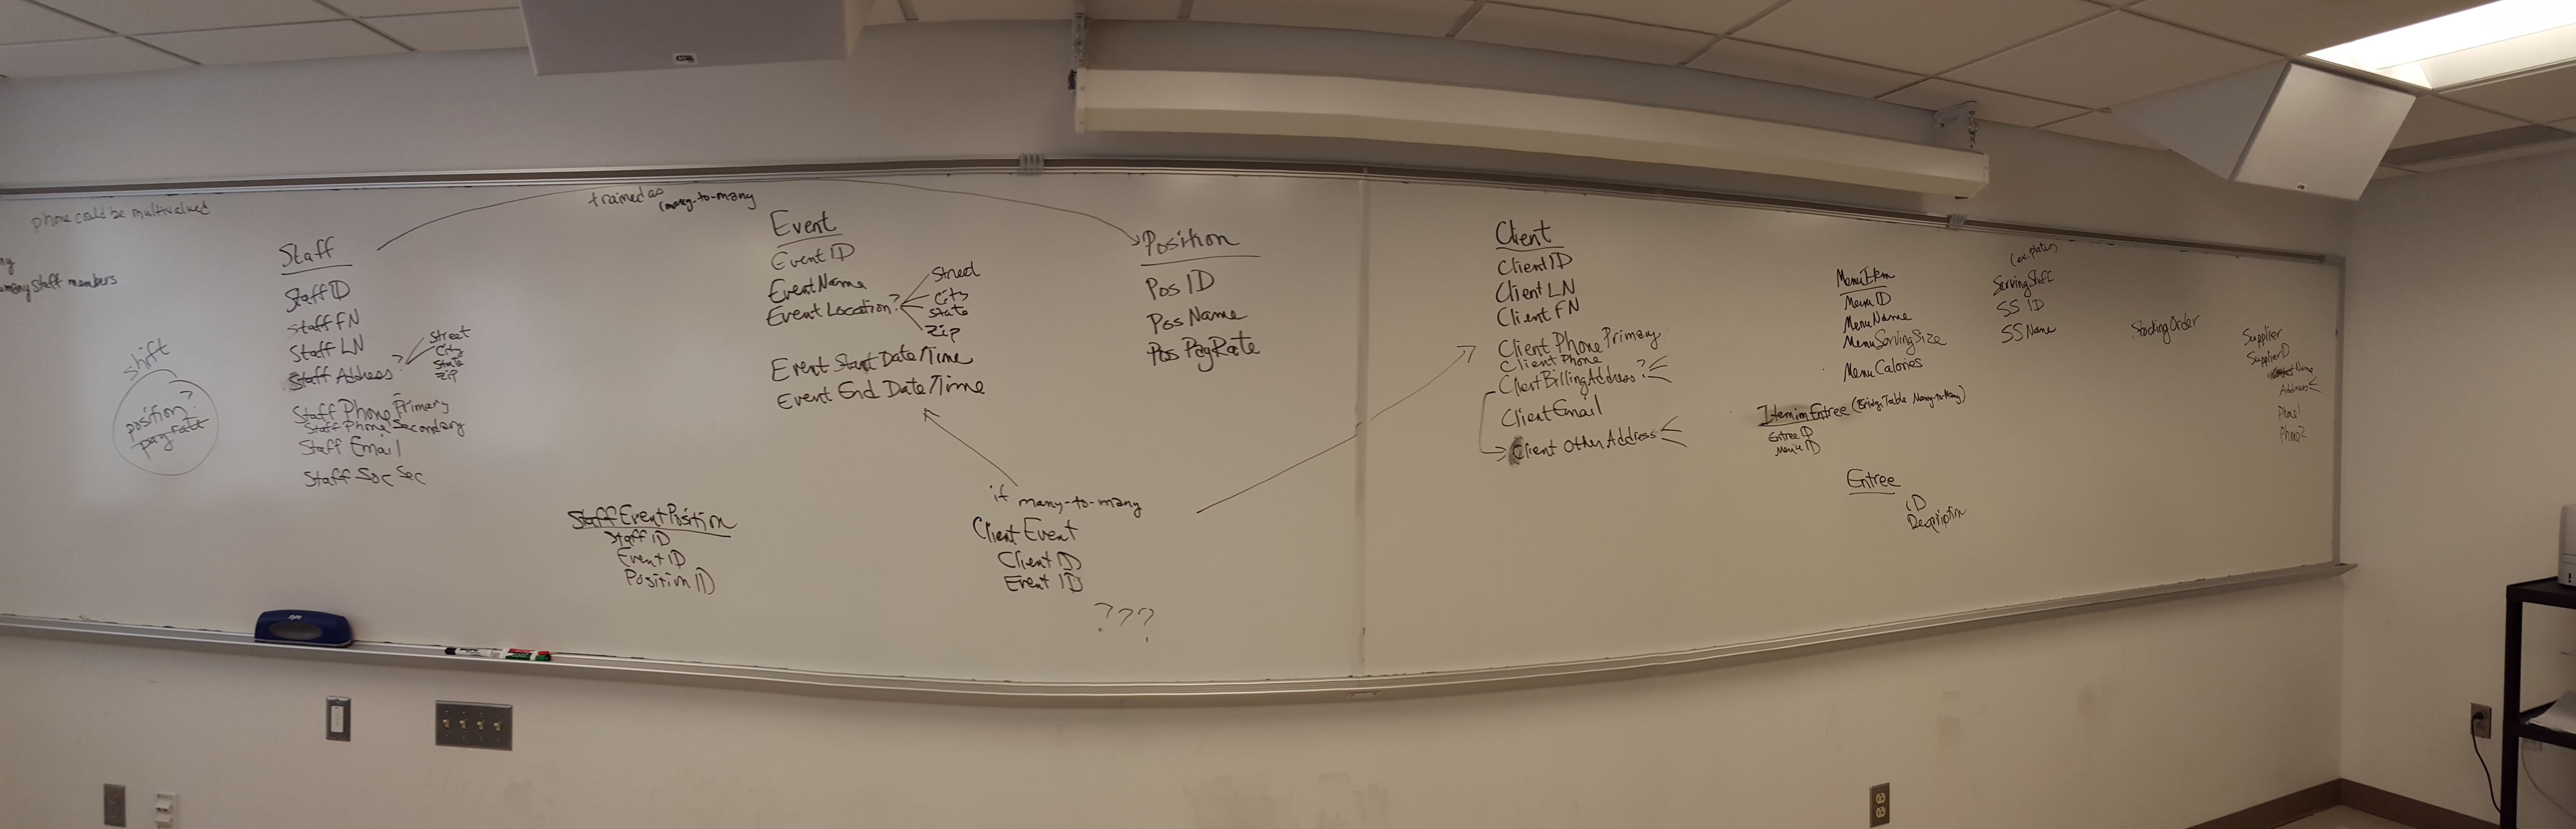 phone could be multivalued
many staff members
shift
position?
payrate
Staff
StaffID
Staff FN
Staff LN
Staff Address?
Street
City
State
Zip
Staff Phone Primary
Staff Phone Secondary
Staff Email
Staff Soc Sec
trained as
(many-to-many
Event
Event ID
Event Name
Event Location?
Street
City
State
Zip
Event Start Date/Time
Event End Date/Time
Position
Pos ID
Pos Name
Pos PayRate
StaffEventPosition
Staff ID
Event ID
Position ID
if many-to-many
Client Event
Client ID
Event ID
???
Client
ClientID
Client LN
Client FN
Client Phone Primary
Client Phone
ClientBillingAddress?
ClientEmail
Client Other Address
MenuItem
Menu ID
MenuName
MenuServingSize
MenuCalories
IteminEntree (Bridge Table Many-to-Many)
Entree ID
Menu ID
Entree
ID
Description
ServingStuff
SS ID
SS Name
StockingOrder
Supplier
SupplierID
Name
Address